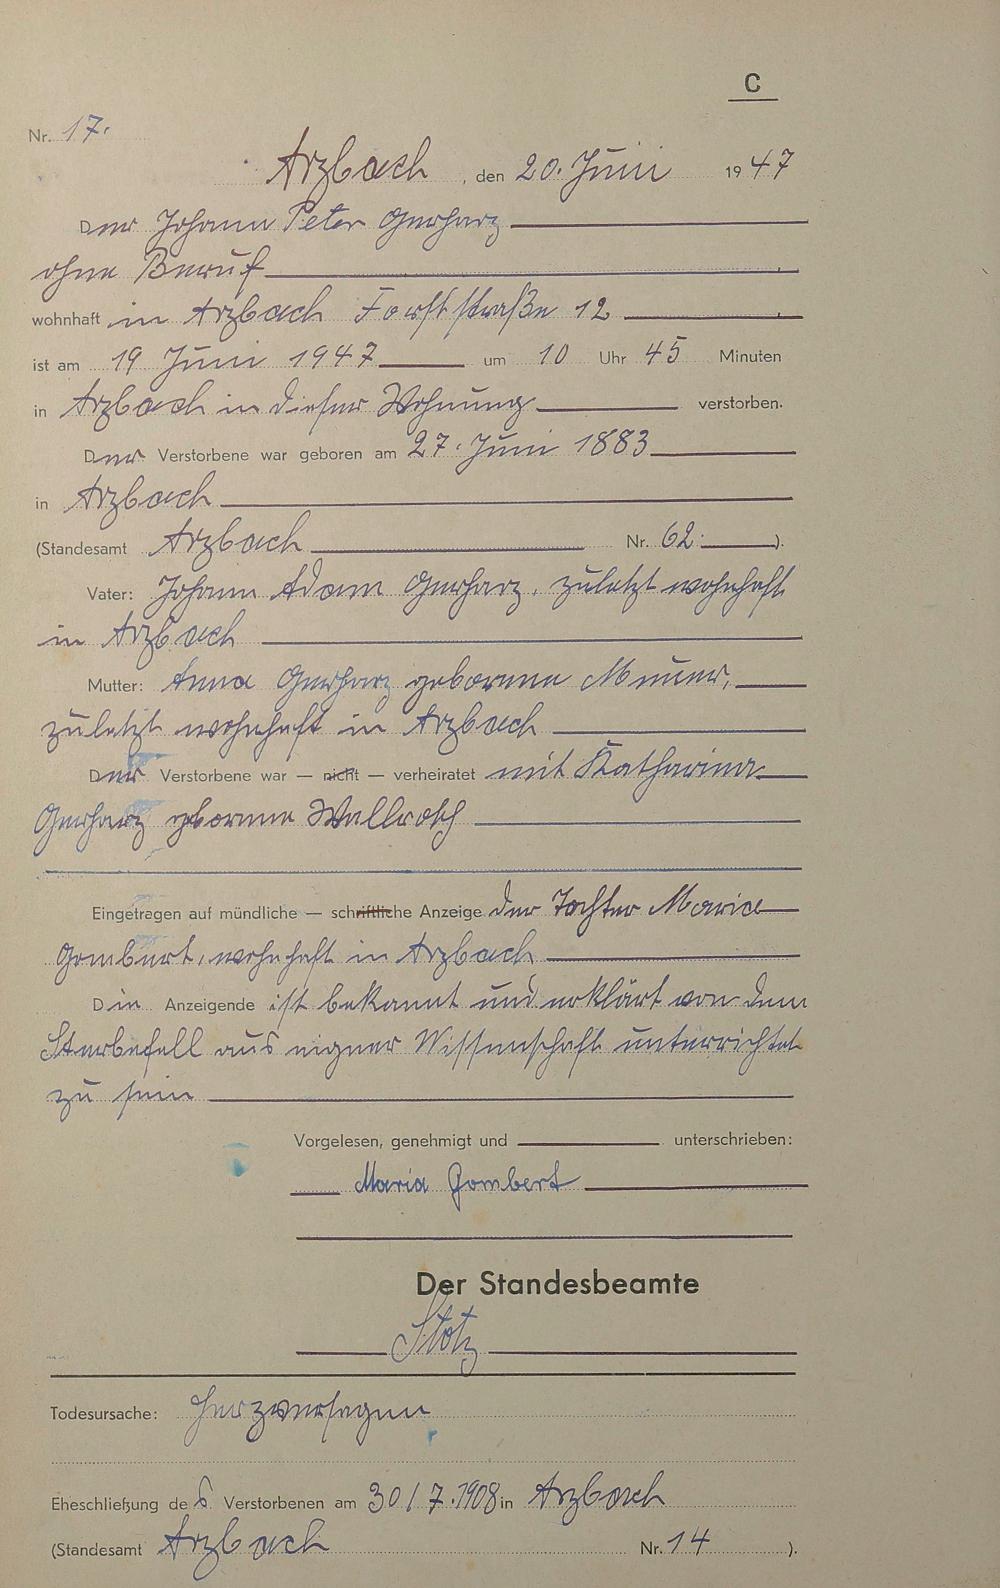 C
Nr. 17.
Arzbach, den 20. Juni 1947
Der Johann Peter Gerharz
ohne Beruf
wohnhaft in Arzbach Forststraße 12
ist am 19 Juni 1947 um 10 Uhr 45 Minuten
in Arzbach in dieser Wohnung verstorben.
Der Verstorbene war geboren am 27. Juni 1883
in Arzbach
(Standesamt Arzbach Nr. 62.).
Vater: Johann Adam Gerharz, zuletzt wohnhaft
in Arzbach
Mutter: Anna Gerharz geborene
zuletzt wohnhaft in Arzbach
Der Verstorbene war — nicht — verheiratet mit Katharina
Gerharz geborene Wallroth
Eingetragen auf mündliche — schriftliche Anzeige der Tochter Maria
Gombert, wohnhaft in Arzbach
Die Anzeigende ist bekannt und erklärt von dem
Sterbefall aus eigner Wissenschaft unterrichtet
zu sein
Vorgelesen, genehmigt und unterschrieben:
Maria Gombert
Der Standesbeamte
Stotz
Todesursache: Herzversagen
Eheschließung des Verstorbenen am 30/7.1908 in Arzbach
(Standesamt Arzbach Nr. 14).